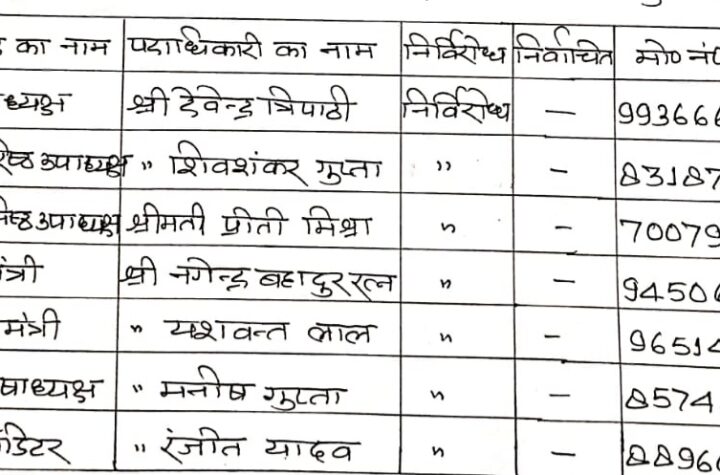 का नाम पदाधिकारी का नाम निर्विरोध निर्वाचित मो० नं०
ध्यक्ष श्री देवेन्द्र त्रिपाठी निर्विरोध — 993666
उपाध्यक्ष " शिवशंकर गुप्ता " — 83187
उपाध्यक्ष श्रीमती प्रीती मिश्रा " — 70079
मंत्री श्री नगेन्द्र बहादुर रत्न " — 94506
मंत्री " यशवन्त लाल " — 96514
षाध्यक्ष " मनीष गुप्ता " — 8574
डिटर " रंजीत यादव " — 8896